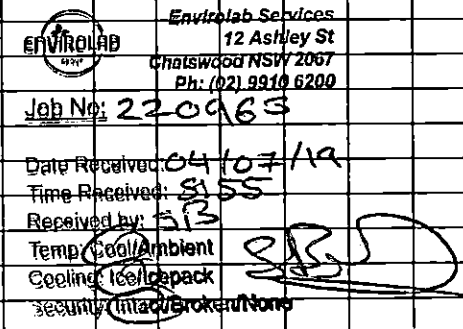 ENVIROLAB
Envirolab Services
12 Ashley St
Chatswood NSW 2067
Ph: (02) 9910 6200
Job No: 220965
Date Received: 04/07/19
Time Received:
Received by: SB
Temp: Cool/Ambient
Cooling: Ice/Icepack
Security: Intact/Broken/None
SB